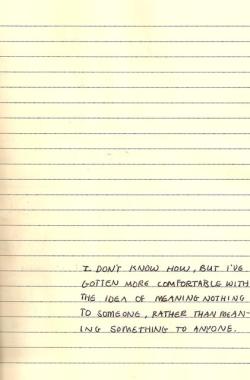 I DON'T KNOW HOW, BUT I'VE
GOTTEN MORE COMFORTABLE WITH
THE IDEA OF MEANING NOTHING
TO SOMEONE, RATHER THAN MEAN-
ING SOMETHING TO ANYONE.